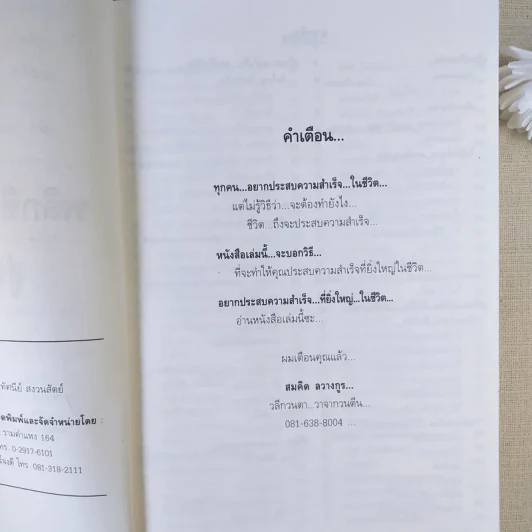 ทัศนีย์ สงวนสัตย์
ดพิมพ์และจัดจำหน่ายโดย :
รามคำแหง 164
โทร. 0-2917-6101
โทร. 081-318-2111
คำเตือน...
ทุกคน...อยากประสบความสำเร็จ...ในชีวิต...
แต่ไม่รู้วิธีว่า...จะต้องทำยังไง...
ชีวิต...ถึงจะประสบความสำเร็จ...
หนังสือเล่มนี้...จะบอกวิธี...
ที่จะทำให้คุณประสบความสำเร็จที่ยิ่งใหญ่ในชีวิต...
อยากประสบความสำเร็จ...ที่ยิ่งใหญ่...ในชีวิต...
อ่านหนังสือเล่มนี้ซะ...
ผมเตือนคุณแล้ว...
สมคิด ลวางกูร...
วลีกวนตา...วาจากวนตีน...
081-638-8004 ...